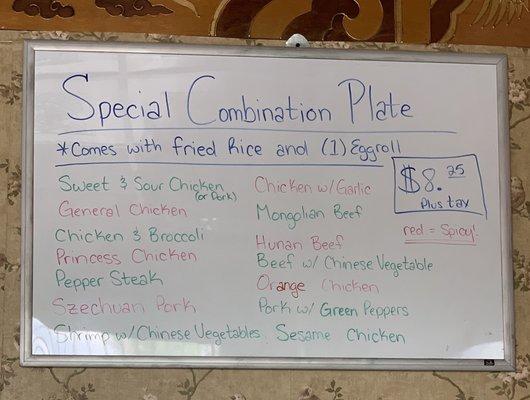 Special Combination Plate
*Comes with fried Rice and (1) Eggroll
Sweet & Sour Chicken
(or Pork)
General Chicken
Chicken & Broccoli
Princess Chicken
Pepper Steak
Szechuan Pork
Shrimp w/Chinese Vegetables
Chicken w/Garlic
Mongolian Beef
Hunan Beef
Beef w/ Chinese Vegetable
Orange Chicken
Pork w/ Green Peppers
Sesame Chicken
$8.25
Plus tax
red = Spicy!